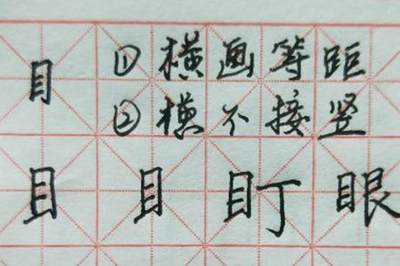 目 ①横画等距
②横不接竖
目 目 盯 眼